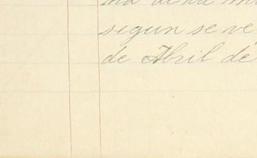 segun se ve
de Abril de